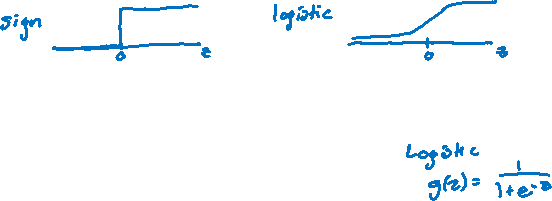 sign
logistic
0
z
0
z
Logistic
g(z) = 1 / 1+e^-z